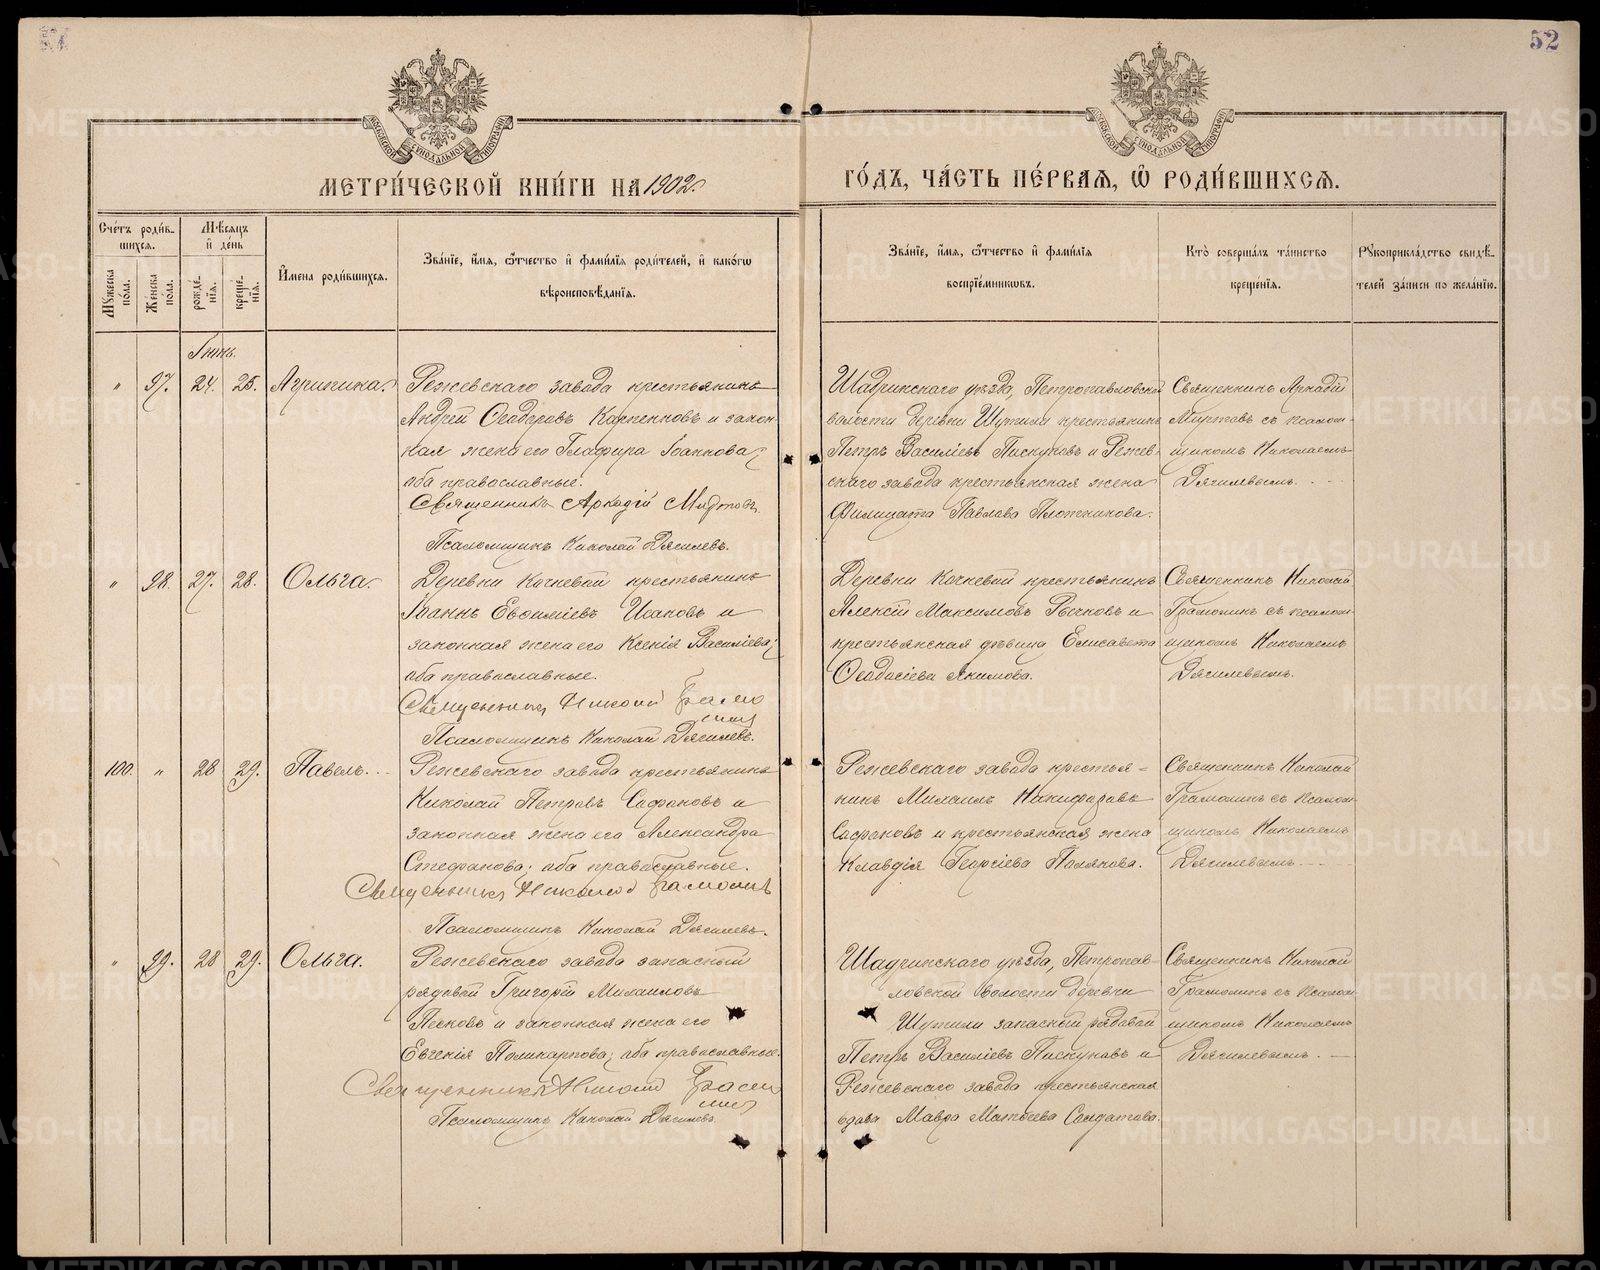 52
МОСКОВСКОЙ СѴНОДАЛЬНОЙ ТИПОГРАФІИ
МОСКОВСКОЙ СѴНОДАЛЬНОЙ ТИПОГРАФІИ
МЕТРИ́ЧЕСКОЙ КНИ́ГИ НА 1902.
ГО́ДЪ, ЧА́СТЬ ПЕ́РВАѦ, Ѽ РОДИ́ВШИХСѦ.
Сче́тъ роди́в-
шихсѧ.
Мꙋ́жеска по́ла.
Же́нска по́ла.
Мѣ́сѧцъ
и҆ де́нь
рожде́-
нїѧ.
креще́-
нїѧ.
И҆мена̀ роди́вшихсѧ.
Зва́нїе, и҆́мѧ, ѻ҆́тчество и҆ фами́лїѧ роди́телей, и҆ како́гѡ
вѣроисповѣ́данїѧ.
Зва́нїе, и҆́мѧ, ѻ҆́тчество и҆ фами́лїѧ
воспрїе́мникѡвъ.
Кто̀ соверша́лъ та́инство
креще́нїѧ.
Рꙋкоприкла́дство свидѣ́-
телей за́писи по жела́нїю.
Іюнь.
„ 97. 24. 25. Агрипина.
Режевскаго завода крестьянинъ
Андрей Ѳеодоровъ Карпенковъ и закон-
ная жена его Глафира Іоаннова;
оба православные.
Священникъ Аркадій Миртовъ.
Псаломщикъ Николай Дягилевъ.
Шадринскаго уѣзда, Петропавловской
волости деревни Шутили крестьянинъ
Петръ Василіевъ Пискуновъ и Режев-
скаго завода крестьянская жена
Филицата Павлова Плотникова.
Священникъ Аркадій
Миртовъ съ псалом-
щикомъ Николаемъ
Дягилевымъ.
„ 98. 27. 28. Ольга.
Деревни Кочневой крестьянинъ
Іоаннъ Евфиміевъ Исаковъ и
законная жена его Ксенія Василіева;
оба православные.
Священникъ Николай Грамо
линъ
Псаломщикъ Николай Дягилевъ.
Деревни Кочневой крестьянинъ
Алексій Максимовъ Рычковъ и
крестьянская дѣвица Елисавета
Ѳеодосіева Якимова.
Священникъ Николай
Грамолинъ съ псалом-
щикомъ Николаемъ
Дягилевымъ.
100. „ 28 29. Павелъ.
Режевскаго завода крестьянинъ
Николай Петровъ Сафоновъ и
законная жена его Александра
Стефанова; оба православные.
Священникъ Николай Грамолинъ
Псаломщикъ Николай Дягилевъ.
Режевскаго завода крестья-
нинъ Михаилъ Никифоровъ
Сафоновъ и крестьянская жена
Клавдія Георгіева Полякова.
Священникъ Николай
Грамолинъ съ псалом-
щикомъ Николаемъ
Дягилевымъ.
„ 99. 28 29. Ольга.
Режевскаго завода запасный
рядовой Григорій Михаиловъ
Песковъ и законная жена его
Евгенія Поликарпова; оба православные.
Священникъ Николай Грамо
линъ
Псаломщикъ Николай Дягилевъ.
Шадринскаго уѣзда, Петропав-
ловской волости деревни
Шутили запасный рядовой
Петръ Василіевъ Пискуновъ и
Режевскаго завода крестьянская
вдова Мавра Матвеева Солдатова.
Священникъ Николай
Грамолинъ съ псалом-
щикомъ Николаемъ
Дягилевымъ.
METRIKI.GASO-URAL.RU